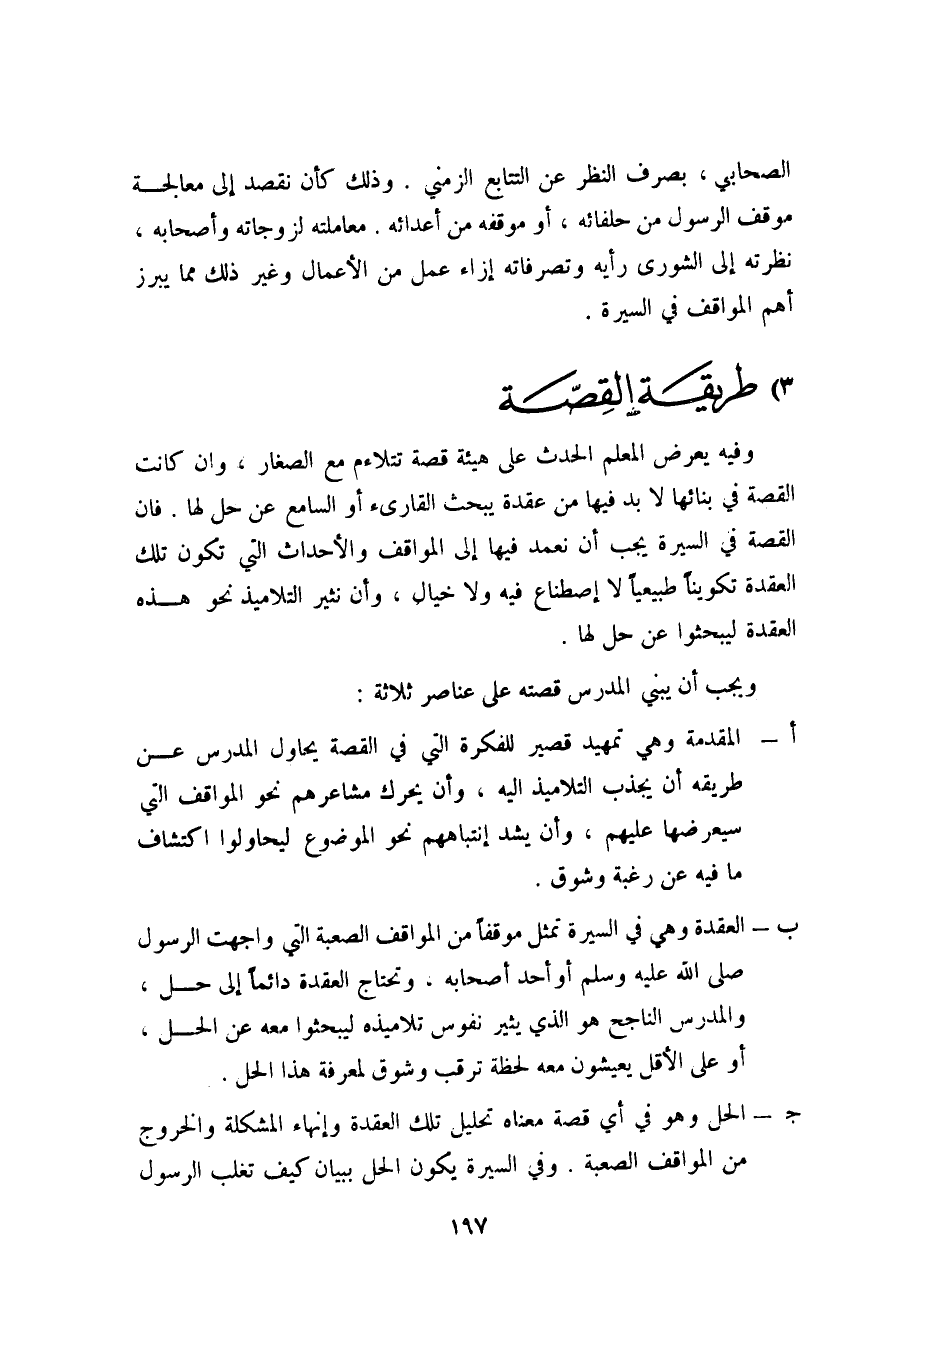 الصحابي ، بصرف النظر عن التتابع الزمني . وذلك كأن نقصد إلى معالجـــة
موقف الرسول من حلفائه ، أو موقفه من أعدائه . معاملته لزوجاته وأصحابه ،
نظرته إلى الشورى رأيه وتصرفاته إزاء عمل من الأعمال وغير ذلك مما يبرز
أهم المواقف في السيرة .
٣) طريقـة القصّـة
وفيه يعرض المعلم الحدث على هيئة قصة تتلاءم مع الصغار ، وان كانت
القصة في بنائها لا بد فيها من عقدة يبحث القارىء أو السامع عن حل لها . فان
القصة في السيرة يجب أن نعمد فيها إلى المواقف والأحداث التي تكون تلك
العقدة تكويناً طبيعياً لا إصطناع فيه ولا خيال ، وأن نثير التلاميذ نحو هـــذه
العقدة ليبحثوا عن حل لها .
ويجب أن يبني المدرس قصته على عناصر ثلاثة :
أ – المقدمة وهي تمهيد قصير للفكرة التي في القصة يحاول المدرس عـــن
طريقه أن يجذب التلاميذ اليه ، وأن يحرك مشاعرهم نحو المواقف التي
سيعرضها عليهم ، وأن يشد إنتباههم نحو الموضوع ليحاولوا اكتشاف
ما فيه عن رغبة وشوق .
ب – العقدة وهي في السيرة تمثل موقفاً من المواقف الصعبة التي واجهت الرسول
صلى الله عليه وسلم أو أحد أصحابه . وتحتاج العقدة دائماً إلى حـــل ،
والمدرس الناجح هو الذي يثير نفوس تلاميذه ليبحثوا معه عن الحـــل ،
أو على الأقل يعيشون معه لحظة ترقب وشوق لمعرفة هذا الحل .
جـ – الحل وهو في أي قصة معناه تحليل تلك العقدة وإنهاء المشكلة والخروج
من المواقف الصعبة . وفي السيرة يكون الحل ببيان كيف تغلب الرسول
١٩٧